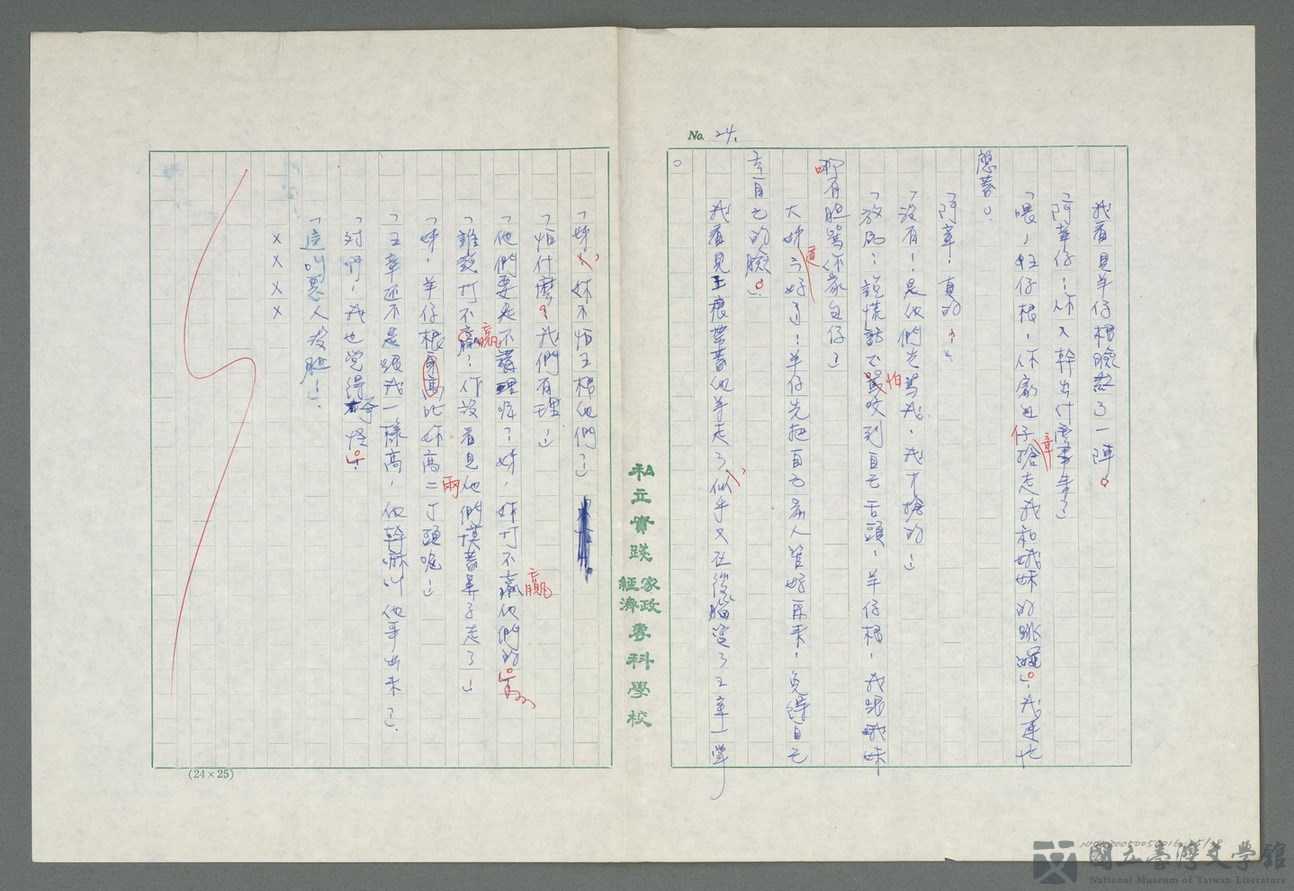 No. 24.
我看見羊仔根臉紅了一陣。
「阿章仔!你又幹出什麼事年了」
「喂!羊仔根,你家羊仔章搶走我和娥妹的跳繩。」我連忙
應著。
「阿章!真的?」
「沒有!是他們先罵我,我才搶的!」
「放屁!說慌話也不怕咬到自己舌頭!羊仔根!我跟娥妹
哪有胆罵你家羊仔」
大姊又道好了!羊仔先把自己家人管好再來!免得自己
丟自己的臉。」
我看見王根帶著他弟走了,似乎又在後腦壳了王章一掌
。
「姊,妳不怕王根他們?」
「怕什麼?我們有理!」
「他們要是不講理呢?姊,妳打不贏他們的。」
「誰說打不贏?你沒看見他們摸著鼻子走了」
「姊!羊仔根身高比妳高兩丁頭呢!」
「王章還不是跟我一樣高,他幹嘛叫他哥出来了」
「對呀!我也覺得奇怪。」
「這叫惡人沒胆!」
××××
私立實踐家政經濟專科學校
(24×25)
國立臺灣文學館
National Museum of Taiwan Literature